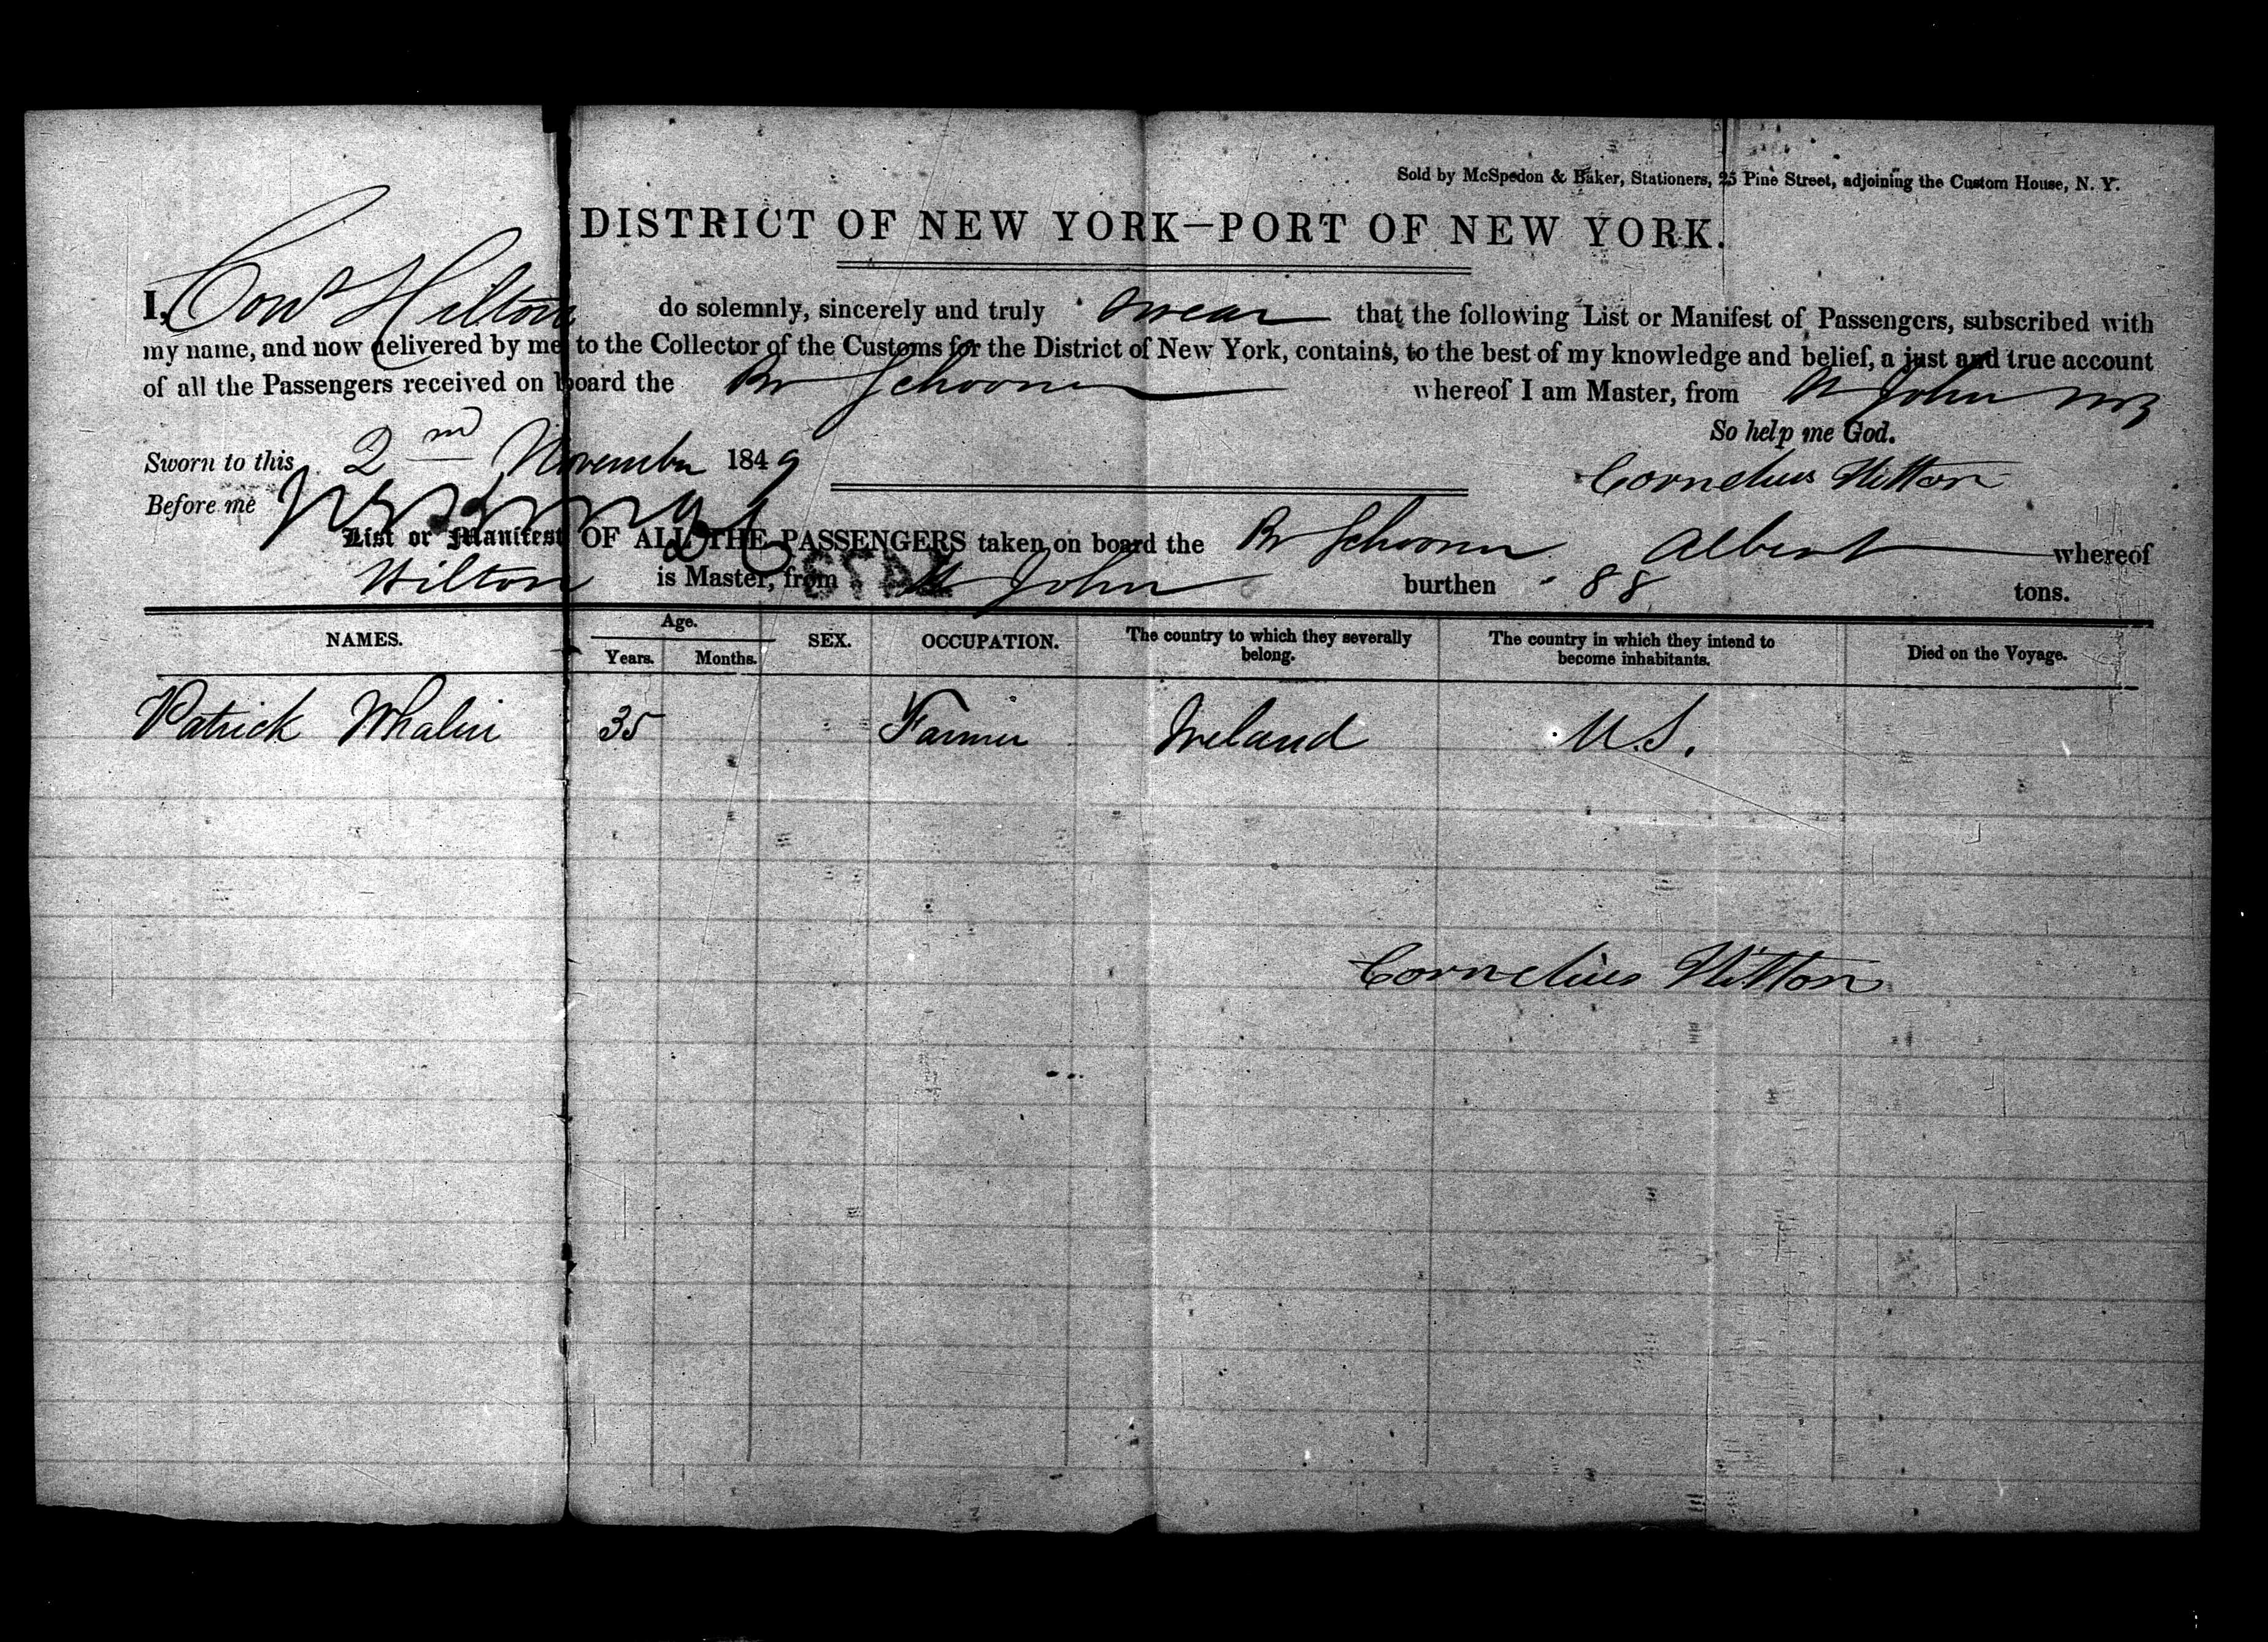 Sold by McSpedon & Baker, Stationers, 25 Pine Street, adjoining the Custom House, N. Y.
DISTRICT OF NEW YORK—PORT OF NEW YORK.
I, Cors Hilton do solemnly, sincerely and truly swear that the following List or Manifest of Passengers, subscribed with
my name, and now delivered by me to the Collector of the Customs for the District of New York, contains, to the best of my knowledge and belief, a just and true account
of all the Passengers received on board the Br Schooner whereof I am Master, from St John NB
So help me God.
Sworn to this 2nd November 1849
Cornelius Hilton
Before me
List or Manifest OF ALL THE PASSENGERS taken on board the Br Schooner Albert whereof
Hilton is Master, from St John burthen 88 tons.
NAMES. Age. Years. Months. SEX. OCCUPATION. The country to which they severally belong. The country in which they intend to become inhabitants. Died on the Voyage.
Patrick Whalin 35 Farmer Ireland U.S.
Cornelius Hilton